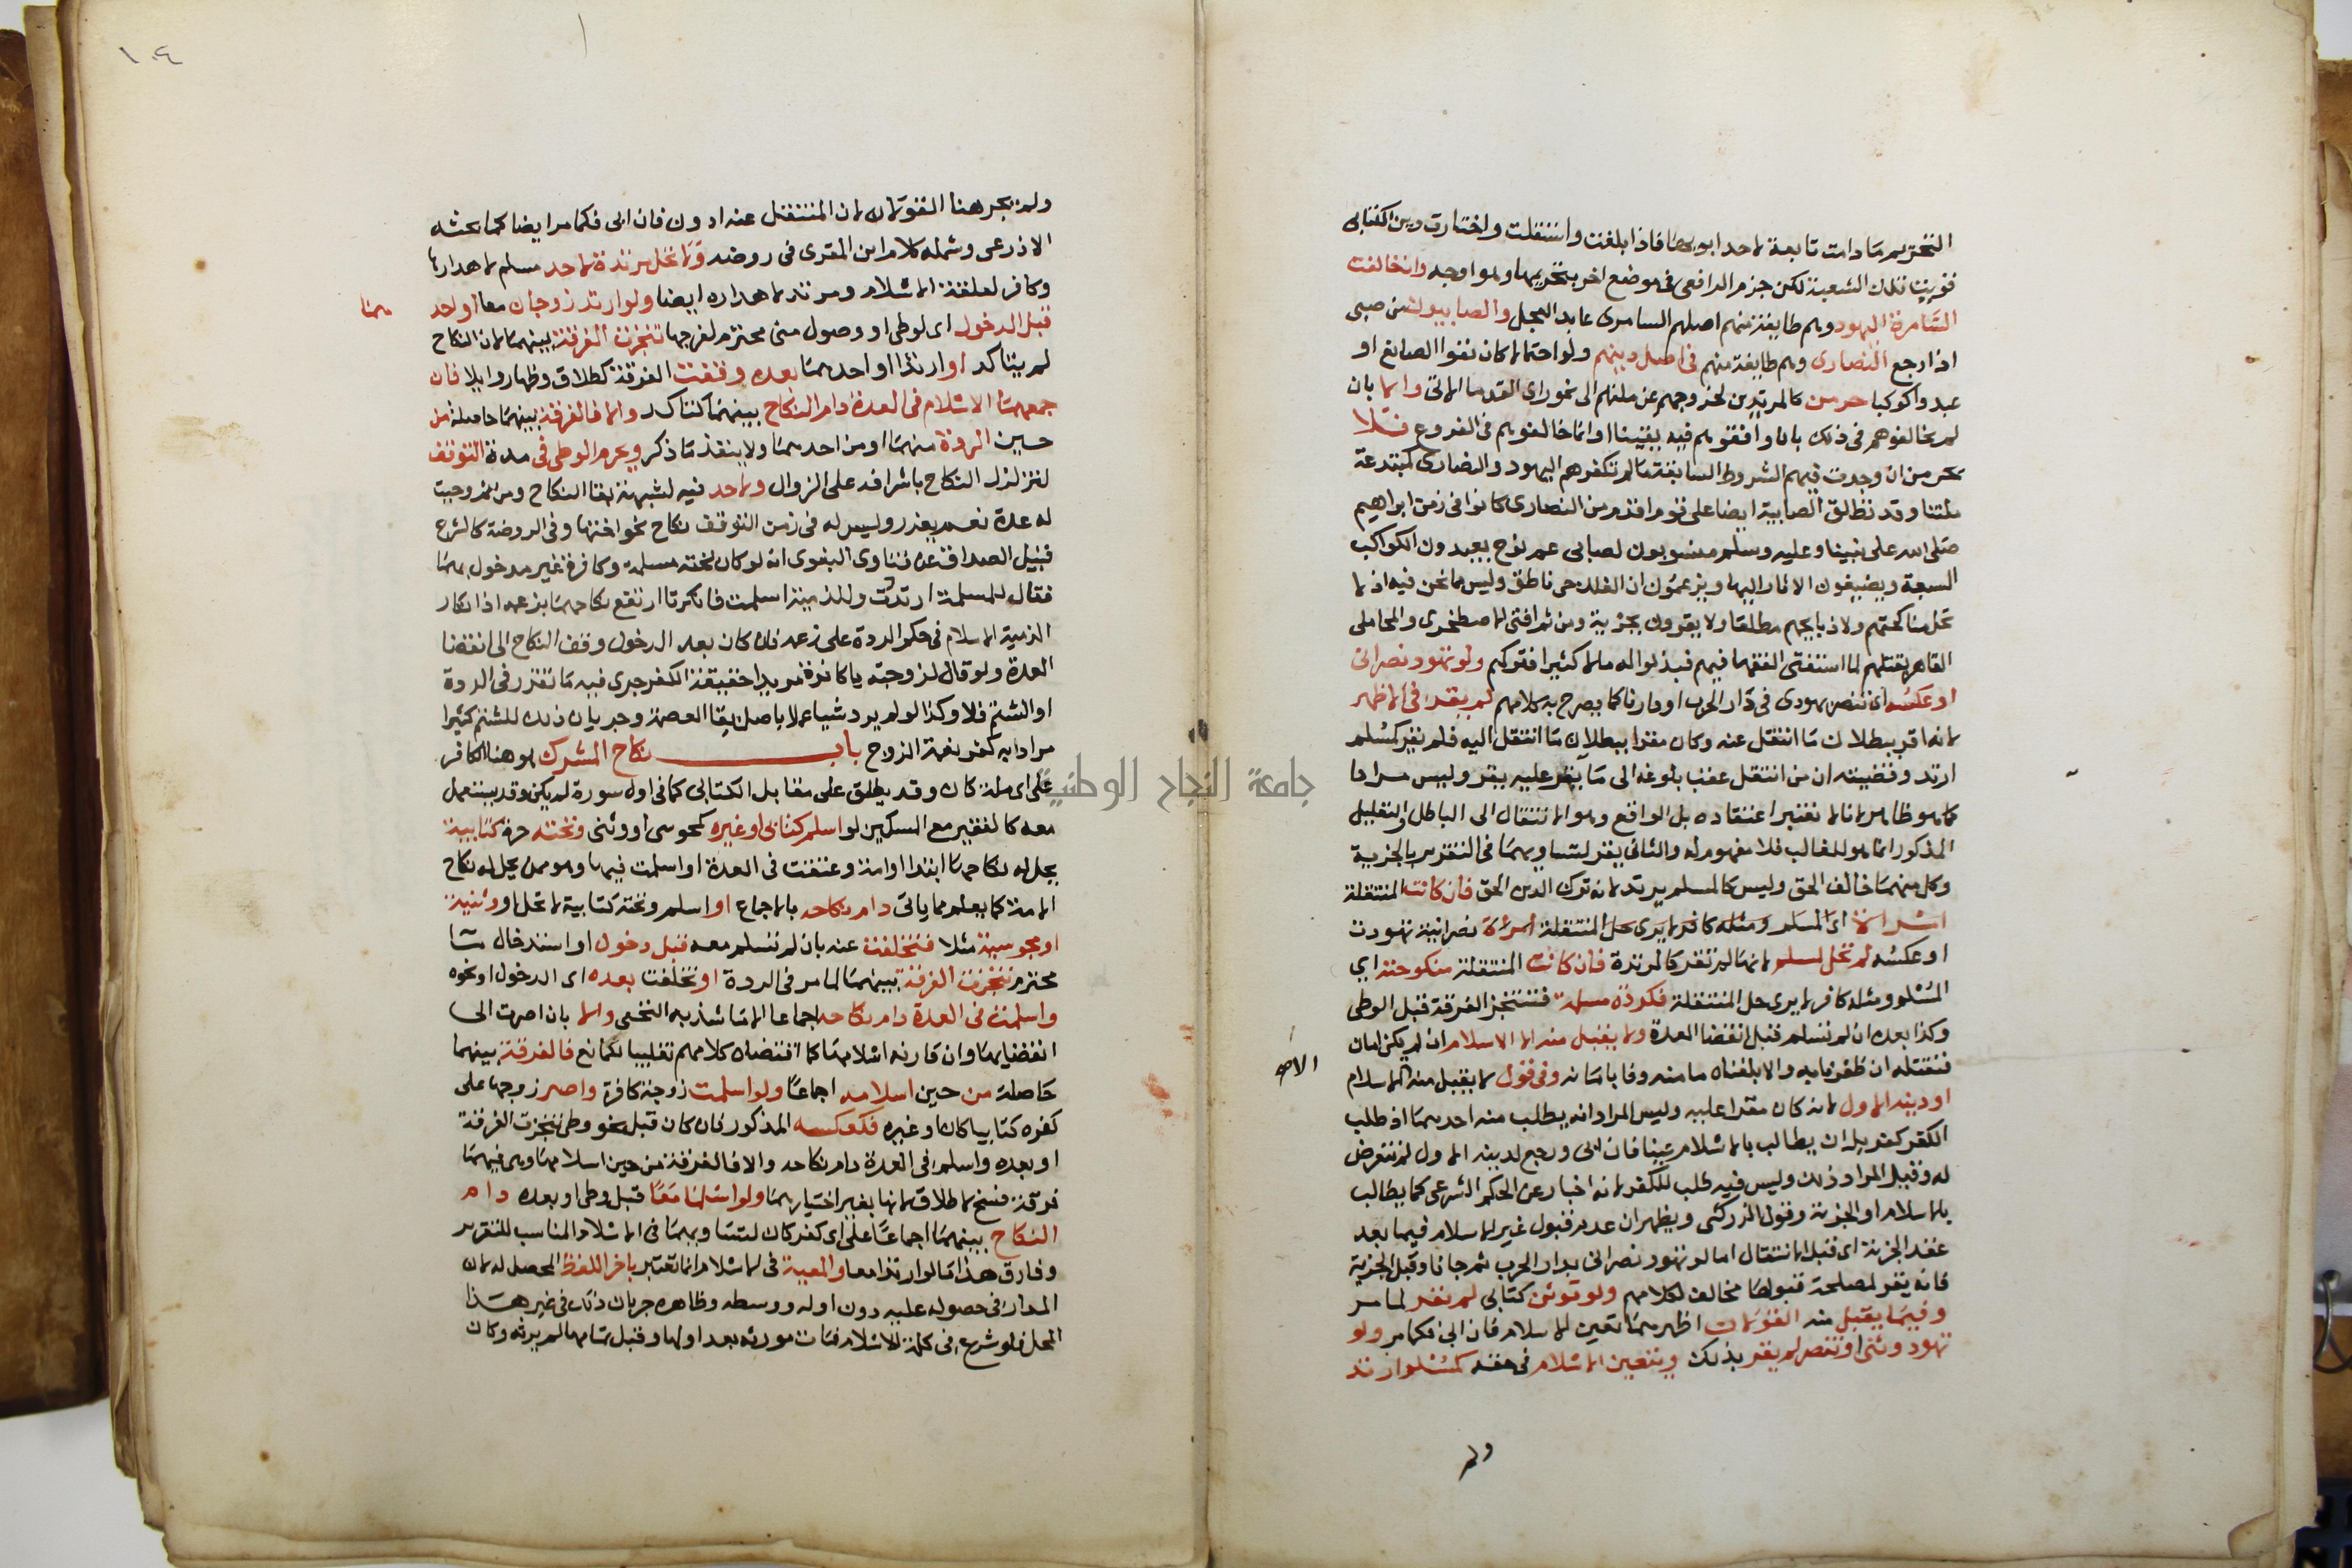 التحريم ما دامت تابعة لاحد ابويها فاذا بلغت وانتقلت واختارت دين الكتابى
فقريبا تلك الشعبة لكن جزم الرافعى فى موضع اخر بتحريمها وهو اوجه وان خالفت
السامرة اليهود وهم طايفة منهم اصلهم السامرى عابد العجل والصابيون من صبى
اذا رجع النصارى وهم طايفة منهم فى اصل دينهم ولو احتمالا كان نفوا الصانع او
عبدوا كوكبا حرمن كالمرتدين لخروجهم عن ملتهم الى نحو راى القدما الاتى والا بان
لم يخالفوهم فى ذلك بان وافقوهم فيه يقينا او انما خالفوهم فى الفروع فلا
يحرمن ان وجدت فيهم الشروط السابقة ما لم تكفرهم اليهود والنصارى كمبتدعة
ملتنا وقد تطلق الصابية ايضا على قوم اقدم من النصارى كانوا فى زمن ابراهيم
صلى الله على نبينا وعليه وسلم منسوبون لصابى عم نوح يعبدون الكواكب
السبعة ويضيفون الاثار اليها ويزعمون ان الفلك حى ناطق وليس مما نحن فيه اذ لا
تحل مناكحتهم ولا ذبايحهم مطلقا ولا يقرون بجزية ومن ثم افتى الاصطخرى والمحاملى
القاهر بقتلهم لما استفتى الفقها فيهم فبذلوا له مالا كثيرا فتركهم ولو تهود نصرانى
او عكسه اى تنصر يهودى فى دار الحرب او دارنا كما يصرح به كلامهم لم يقر فى الاظهر
لانه اقر ببطلان ما انتقل عنه وكان مقرا ببطلان ما انتقل اليه فلم يقر كمسلم
ارتد وقضيته ان من انتقل عقب بلوغه الى ما يقر عليه يقر وليس مرادا
كما هو ظاهر لانا لا نعتبر اعتقاده بل الواقع وهو الانتقال الى الباطل والتعليل
المذكور انما هو للغالب فلا مفهوم له والثانى يقر لتساويهما فى التقرير بالجزية
وكل منهما خالف الحق وليس كالمسلم يرتد لانه ترك الدين الحق فان كانت المنتقلة
امراة اى لمسلم ومثله كافر لا يرى حل المنتقلة امراة نصرانية تهودت
او عكسه لم تحل لمسلم لانها لا تقر كالمرتدة فان كانت المنتقلة منكوحته اي
المسلم ومثله كافر لا يرى حل المنتقلة فكردة مسلمة فتتنجز الفرقة قبل الوطى
وكذا بعده ان لم تسلم قبل انقضا العدة ولا يقبل منه الا الاسلام ان لم يكن امان
فنقتله ان ظفرنا به والا بلغناه مامنه وفا بامانه وفى قول لا يقبل منه الا الاسلام
او دينه الاول لانه كان مقرا عليه وليس المراد انه يطلب منه احدهما اذ طلب
الكفر كفر بل ان يطالب بالاسلام عينا فان ابى ورجع لدينه الاول لم نتعرض
له وقيل المراد ذلك وليس فيه طلب للكفر لانه اخبار عن الحكم الشرعى كما يطالب
بالاسلام او الجزية وقول الزركشى ويظهر ان عدم قبول غير الاسلام فيما بعد
عقد الجزية اى قبل الانتقال اما لو تهود نصرانى بدار الحرب ثم جانا وقبل الجزية
فانه يقر لمصلحة قبولها مخالف لكلامهم ولو توثن كتابى لم يقر لما مر
وفيما يقبل منه القولان اظهرهما تعين الاسلام فان ابى فكما مر ولو
تهود وثنى او تنصر لم يقر بذلك ويتعين الاسلام فى حقه كمسلم ارتد
ولم
الا
١٠٤
ولم يجر هنا القولان لان المنتقل عنه ادون فان ابى فكما مر ايضا كما بحثه
الاذرعى وشمله كلام ابن المقرى فى روضه ولا تحل مرتدة لاحد مسلم لاهدارها
وكافر لعلقة الاسلام ومرتد لاهداره ايضا ولو ارتد زوجان معا او احدهما
قبل الدخول اى لوطى او وصول منى محترم لفرجها تنجزت الفرقة بينهما لان النكاح
لم يتاكد او ارتدا او احدهما بعده وقفت الفرقة كطلاق وظهار وايلا فان
جمعهما الاسلام فى العدة دام النكاح بينهما لتاكده والا فالفرقة بينهما حاصلة من
حين الردة منهما او من احدهما ولا ينفذ ما ذكر ويحرم الوطى فى مدة التوقف
لتزلزل النكاح باشرافه على الزوال ولا حد فيه لشبهة بقا النكاح ومن ثم وجبت
له عدة نعم يعزر وليس له فى زمن التوقف نكاح نحو اختها وفى الروضة كالشرح
قبيل الصداق عن فتاوى البغوى انه لو كان تحته مسلمة وكافرة غير مدخول بهما
فقال للمسلمة ارتددت وللذمية اسلمت فانكرتا ارتفع نكاحهما بزعمه اذ انكار
الذمية الاسلام فى حكم الردة على زعمه فلو كان بعد الدخول وقف النكاح الى انقضا
العدة ولو قال لزوجته يا كافرة مريدا حقيقة الكفر جرى فيه ما تقرر فى الردة
او الشتم فلا وكذا لو لم يرد شيا عملا باصل بقا العصمة وجريان ذلك للشتم كثيرا
مرادا به كفر نعمة الزوج باب نكاح المشرك هو هنا الكافر
على اى ملة كان وقد يطلق على مقابل الكتابى كما فى اول سورة لم يكن وقد يستعمل
معه كالفقير مع المسكين لو اسلم كتابى او غيره كمجوسى او وثنى وتحته حرة كتابية
يحل له نكاحها ابتدا او امة وعتقت فى العدة او اسلمت فيها وهو ممن يحل له نكاح
الامة كما يعلم مما ياتى دام نكاحه بالاجماع او اسلم وتحته كتابية لا تحل او وثنية
او مجوسية مثلا فتخلفت عنه بان لم تسلم معه قبل دخول او استدخال ما
محترم تنجزت الفرقة بينهما لما مر فى الردة او تخلفت بعده اى الدخول او نحوه
واسلمت فى العدة دام نكاحه اجماعا الا ما شذ به النخعى والا بان اصرت الى
انقضايها وان قارنه اسلامها كما اقتضاه كلامهم تغليبا للمانع فالفرقة بينهما
حاصلة من حين اسلامه اجماعا ولو اسلمت زوجة كافرة واصر زوجها على
كفره كتابيا كان او غيره فكعكسه المذكور فان كان قبل نحو وطى تنجزت الفرقة
او بعده واسلم فى العدة دام نكاحه والا فالفرقة من حين اسلامها وهى فيهما
فرقة فسخ لا طلاق لانها بغير اختيارهما ولو اسلما معا قبل وطى او بعده دام
النكاح بينهما اجماعا على اى كفر كان لتساويهما فى الاسلام المناسب للتقرير
وفارق هذا ما لو ارتدا معا والمعية فى الاسلام انما تعتبر باخر اللفظ المحصل له لان
المدار فى حصوله عليه دون اوله ووسطه وظاهره جريان ذلك فى غير هذا
المحل فلو شرع فى كلمة الاسلام فمات مورثه بعد اولها وقبل تمامها لم يرثه وكان
جامعة النجاح الوطنية